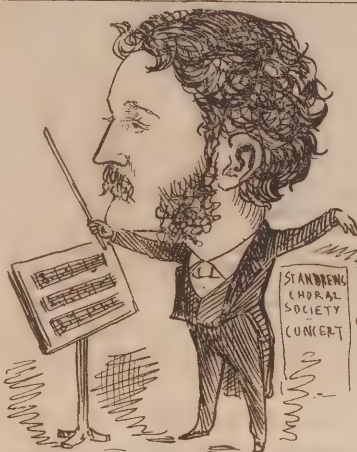 ST ANDREWS
CHORAL
SOCIETY
CONCERT